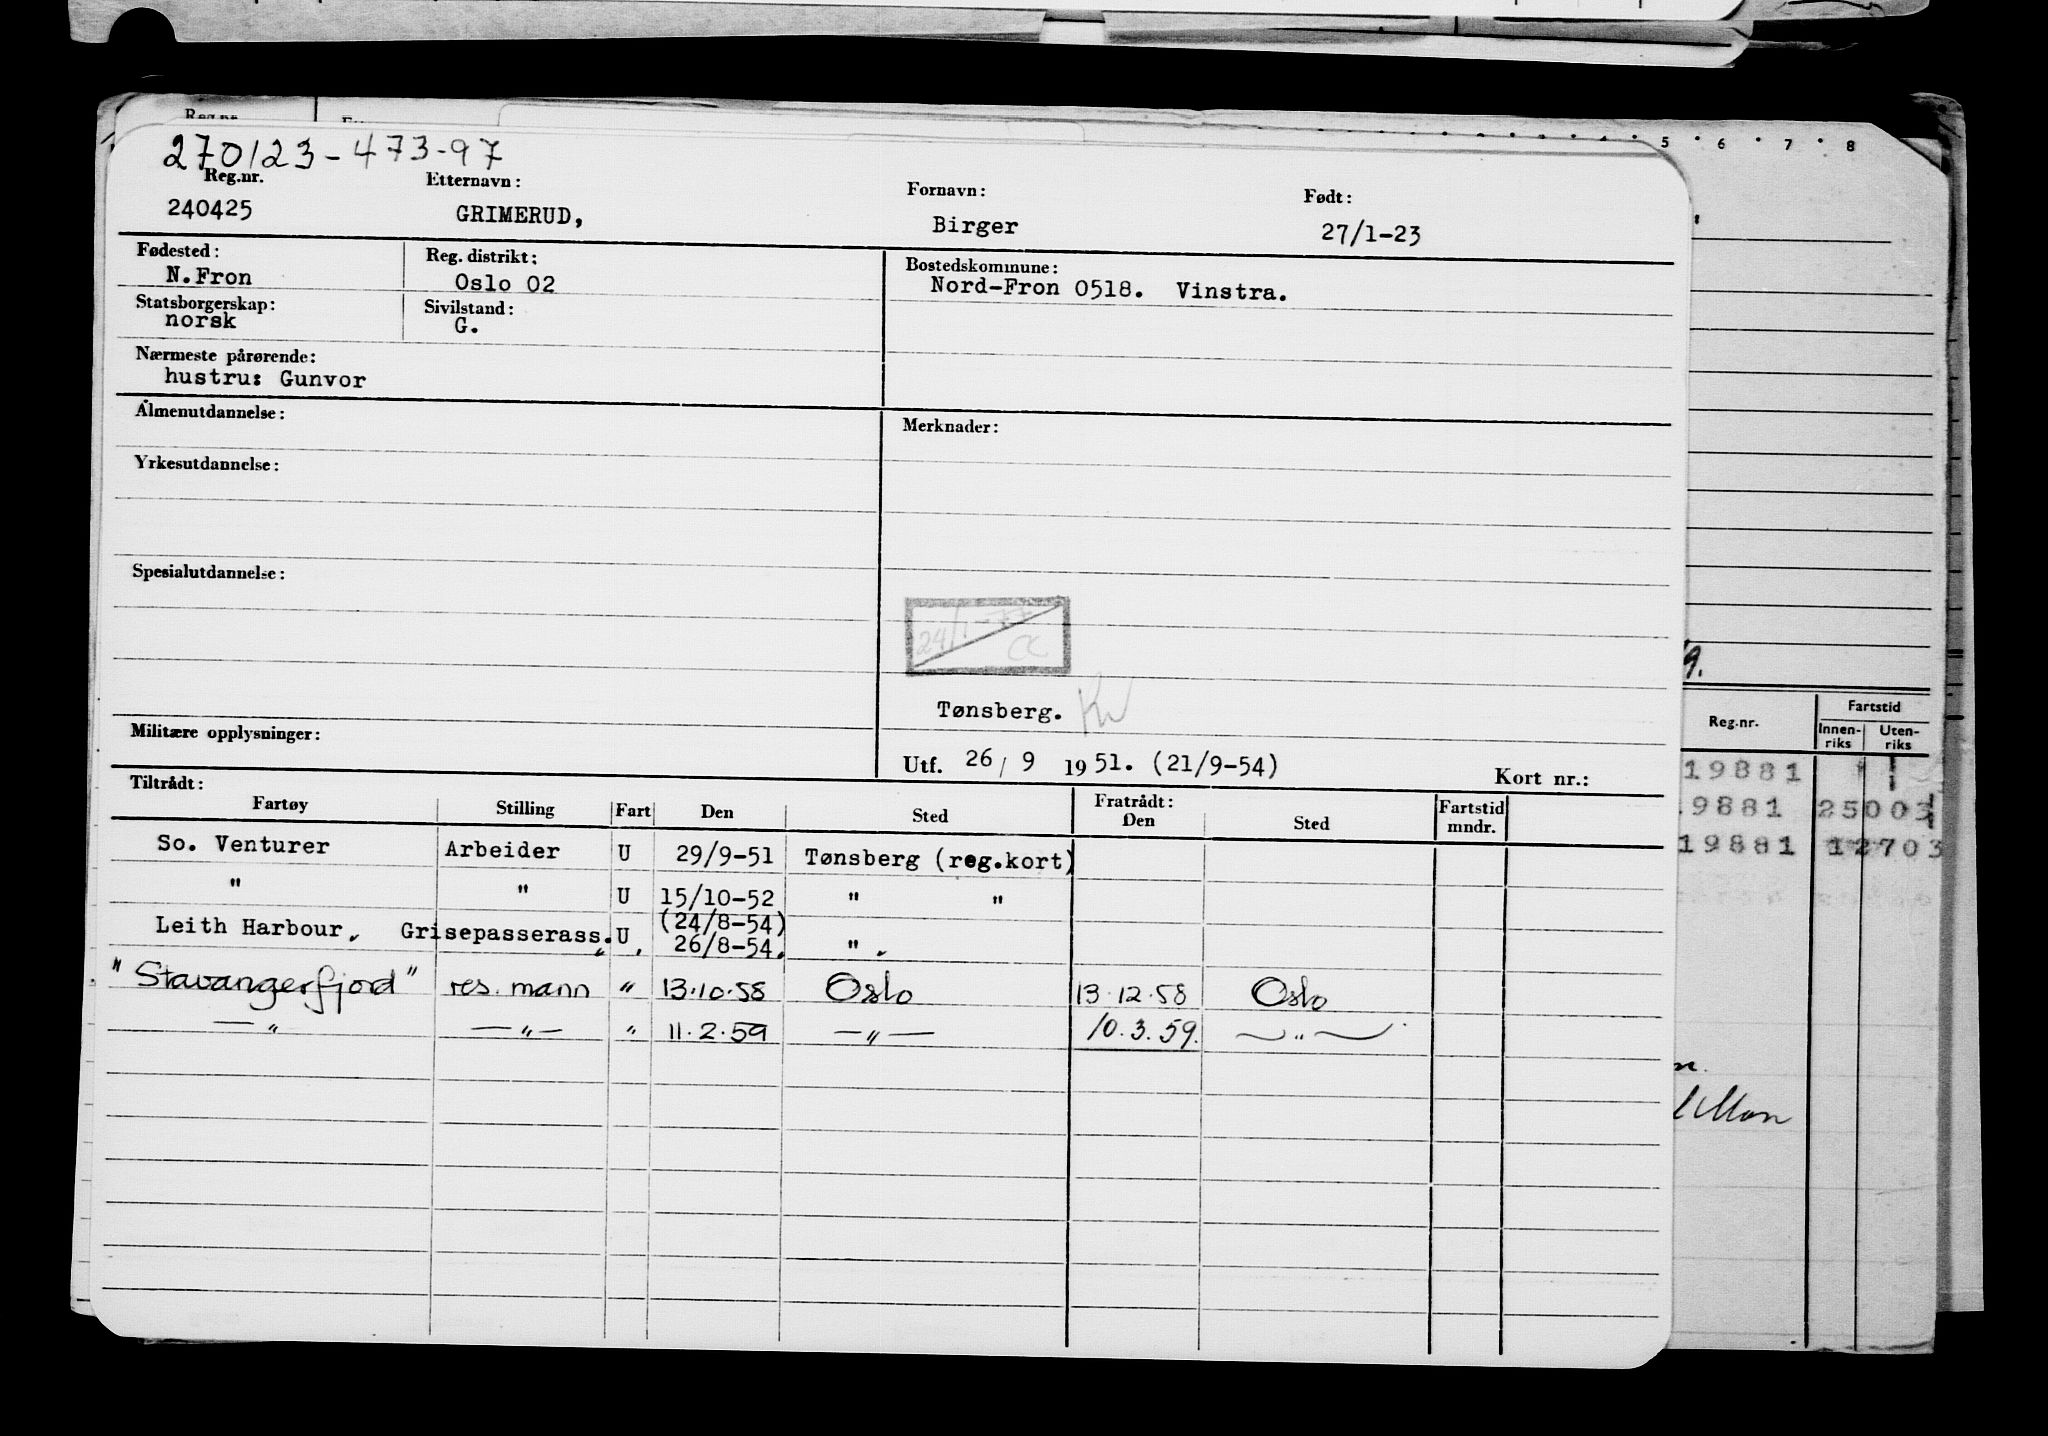 Reg.nr.
5 6 7 8
270123-473-97
Reg.nr. Etternavn: Fornavn: Født:
240425 GRIMERUD, Birger 27/1-23
Fødested: Reg. distrikt: Bostedskommune:
N.Fron Oslo 02 Nord-Fron 0518. Vinstra.
Statsborgerskap: Sivilstand:
norsk G.
Nærmeste pårørende:
hustru: Gunvor
Almenutdannelse: Merknader:
Yrkesutdannelse:
Spesialutdannelse:
Tønsberg. Kw
Militære opplysninger:
Utf. 26/9 1951. (21/9-54) Kort nr.:
Tiltrådt: Fratrådt:
Fartøy Stilling Fart Den Sted Den Sted Fartstid mndr.
So. Venturer Arbeider U 29/9-51 Tønsberg (reg.kort)
" " U 15/10-52 " "
(24/8-54)
Leith Harbour. Grisepasserass. U 26/8-54. "
"Stavangerfjord" res. mann " 13.10.58 Oslo 13.12.58 Oslo
—"— —"— " 11.2.59 —"— 10.3.59. —"—
9.
Reg.nr. Fartstid
Innen-riks Uten-riks
19881
9881 25003
19881 12703